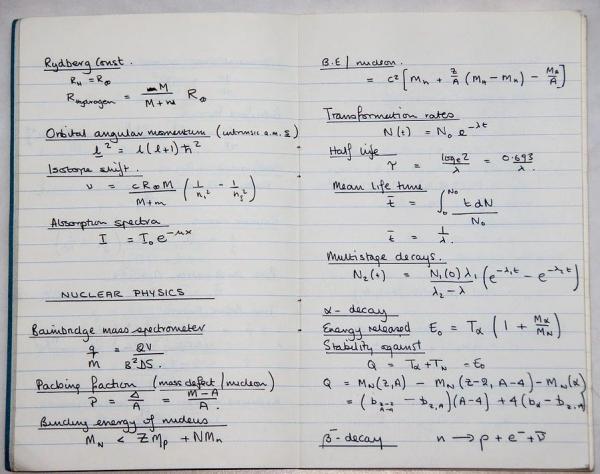 Rydberg Const.
R_H = R_∞
R_Hydrogen = M / (M + m) R_∞
Orbital angular momentum (intrinsic a.m. s)
l² = l(l+1)ħ²
Isotope shift.
ν = cR_∞M / (M+m) (1/n₁² - 1/n₂²)
Absorption spectra
I = I₀e^{-μx}
NUCLEAR PHYSICS
Bainbridge mass spectrometer
q/m = 2V / B²DS.
Packing fraction (mass defect / nucleon)
P = Δ/A = (M-A)/A
Binding energy of nucleus
M_N < ZM_p + NM_n
B.E / nucleon.
= c² [m_n + Z/A (m_H - m_n) - M_a/A]
Transformation rates
N(t) = N₀ e^{-λt}
Half life
τ = log_e 2 / λ = 0.693 / λ
Mean Life time
t̄ = ∫₀^{N₀} t dN / N₀
t̄ = 1/λ.
Multistage decays.
N₂(t) = N₁(0) λ₁ / (λ₂ - λ) (e^{-λ₁t} - e^{-λ₂t})
α- decay
Energy released E₀ = T_α (1 + M_α/M_N)
Stability against
Q = T_α + T_N = E₀
Q = M_N(Z,A) - M_N(Z-2, A-4) - M_N(α)
= (b_{Z-2,A-4} - b_{Z,A})(A-4) + 4(b_α - b_{Z,A})
β⁻-decay n → p + e⁻ + ν̄